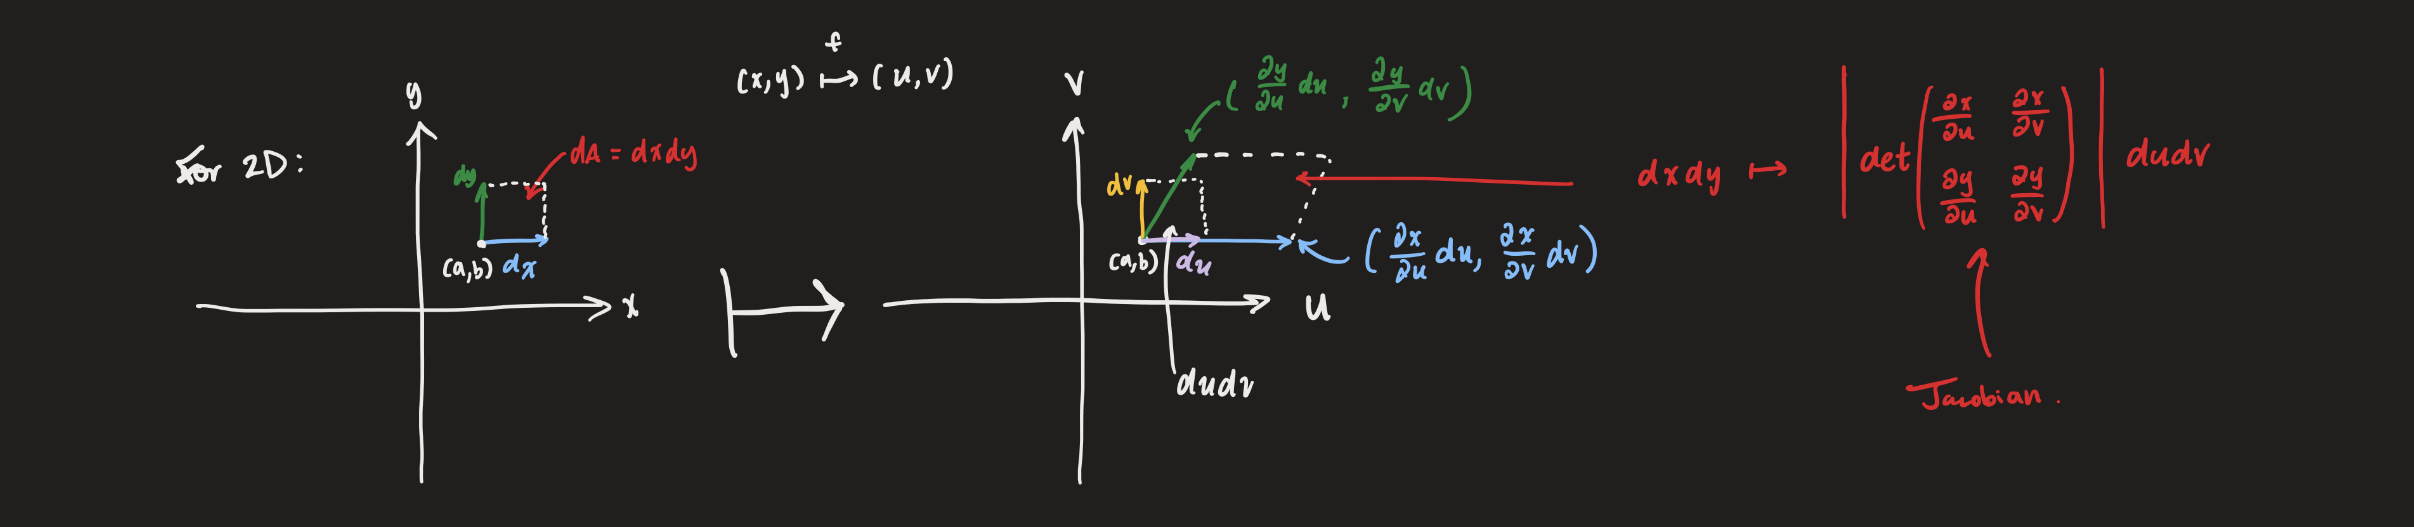 for 2D:
y
dy
dA = dxdy
(a,b) dx
x
f
(x,y) ↦ (u,v)
v
(∂y/∂u du, ∂y/∂v dv)
dv
(a,b) du
(∂x/∂u du, ∂x/∂v dv)
u
dudv
dxdy ↦ |det(∂x/∂u ∂x/∂v
∂y/∂u ∂y/∂v)| dudv
Jacobian.